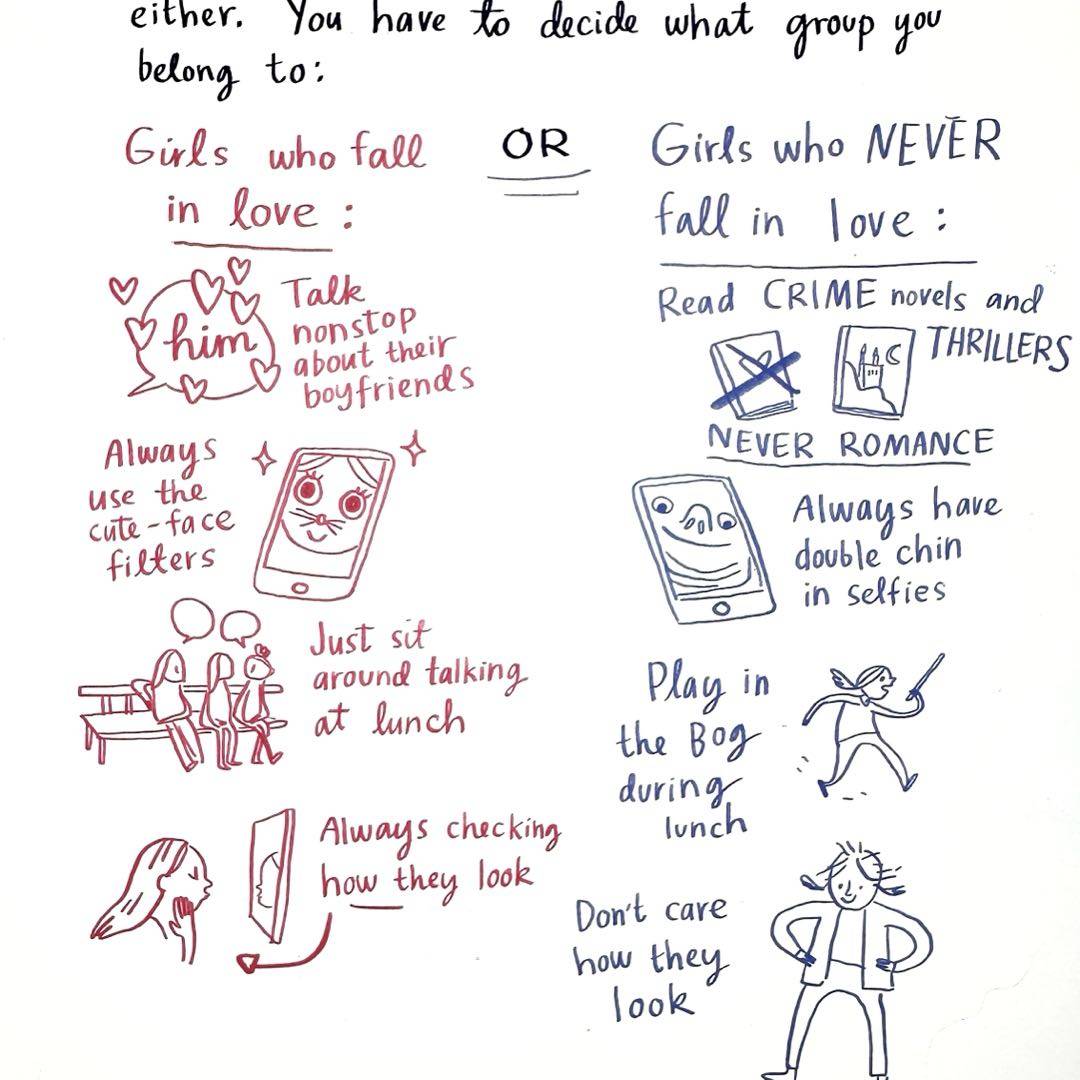 either. You have to decide what group you
belong to:
Girls who fall
in love:
OR
Girls who NEVER
fall in love:
him
Talk
nonstop
about their
boyfriends
Always
use the
cute-face
filters
Just sit
around talking
at lunch
Always checking
how they look
Read CRIME novels and
THRILLERS
NEVER ROMANCE
Always have
double chin
in selfies
Play in
the Bog
during
lunch
Don't care
how they
look